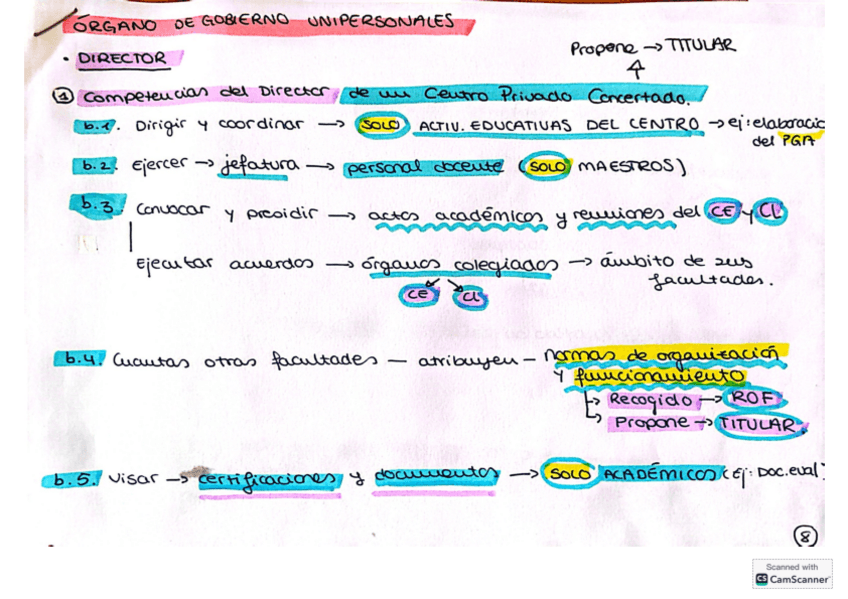 ÓRGANO DE GOBIERNO UNIPERSONALES
• DIRECTOR
Propone → TITULAR
① Competencias del Director de un Centro Privado Concertado.
b.1. Dirigir y coordinar → SOLO ACTIV. EDUCATIVAS DEL CENTRO → ej: elaboracio
del PGA
b.2. Ejercer → jefatura → personal docente (SOLO MAESTROS)
b.3. Convocar y presidir → actos académicos y reuniones del CE y CL
Ejecutar acuerdos → órganos colegiados → ámbito de sus
facultades.
CE CL
b.4. Cuantas otras facultades — atribuyen — normas de organización
y funcionamiento
↳ Recogido → ROF
↳ Propone → TITULAR.
b.5. Visar → certificaciones y documentos → SOLO ACADÉMICOS (ej: DOC.eval)
8
Scanned with
CS CamScanner